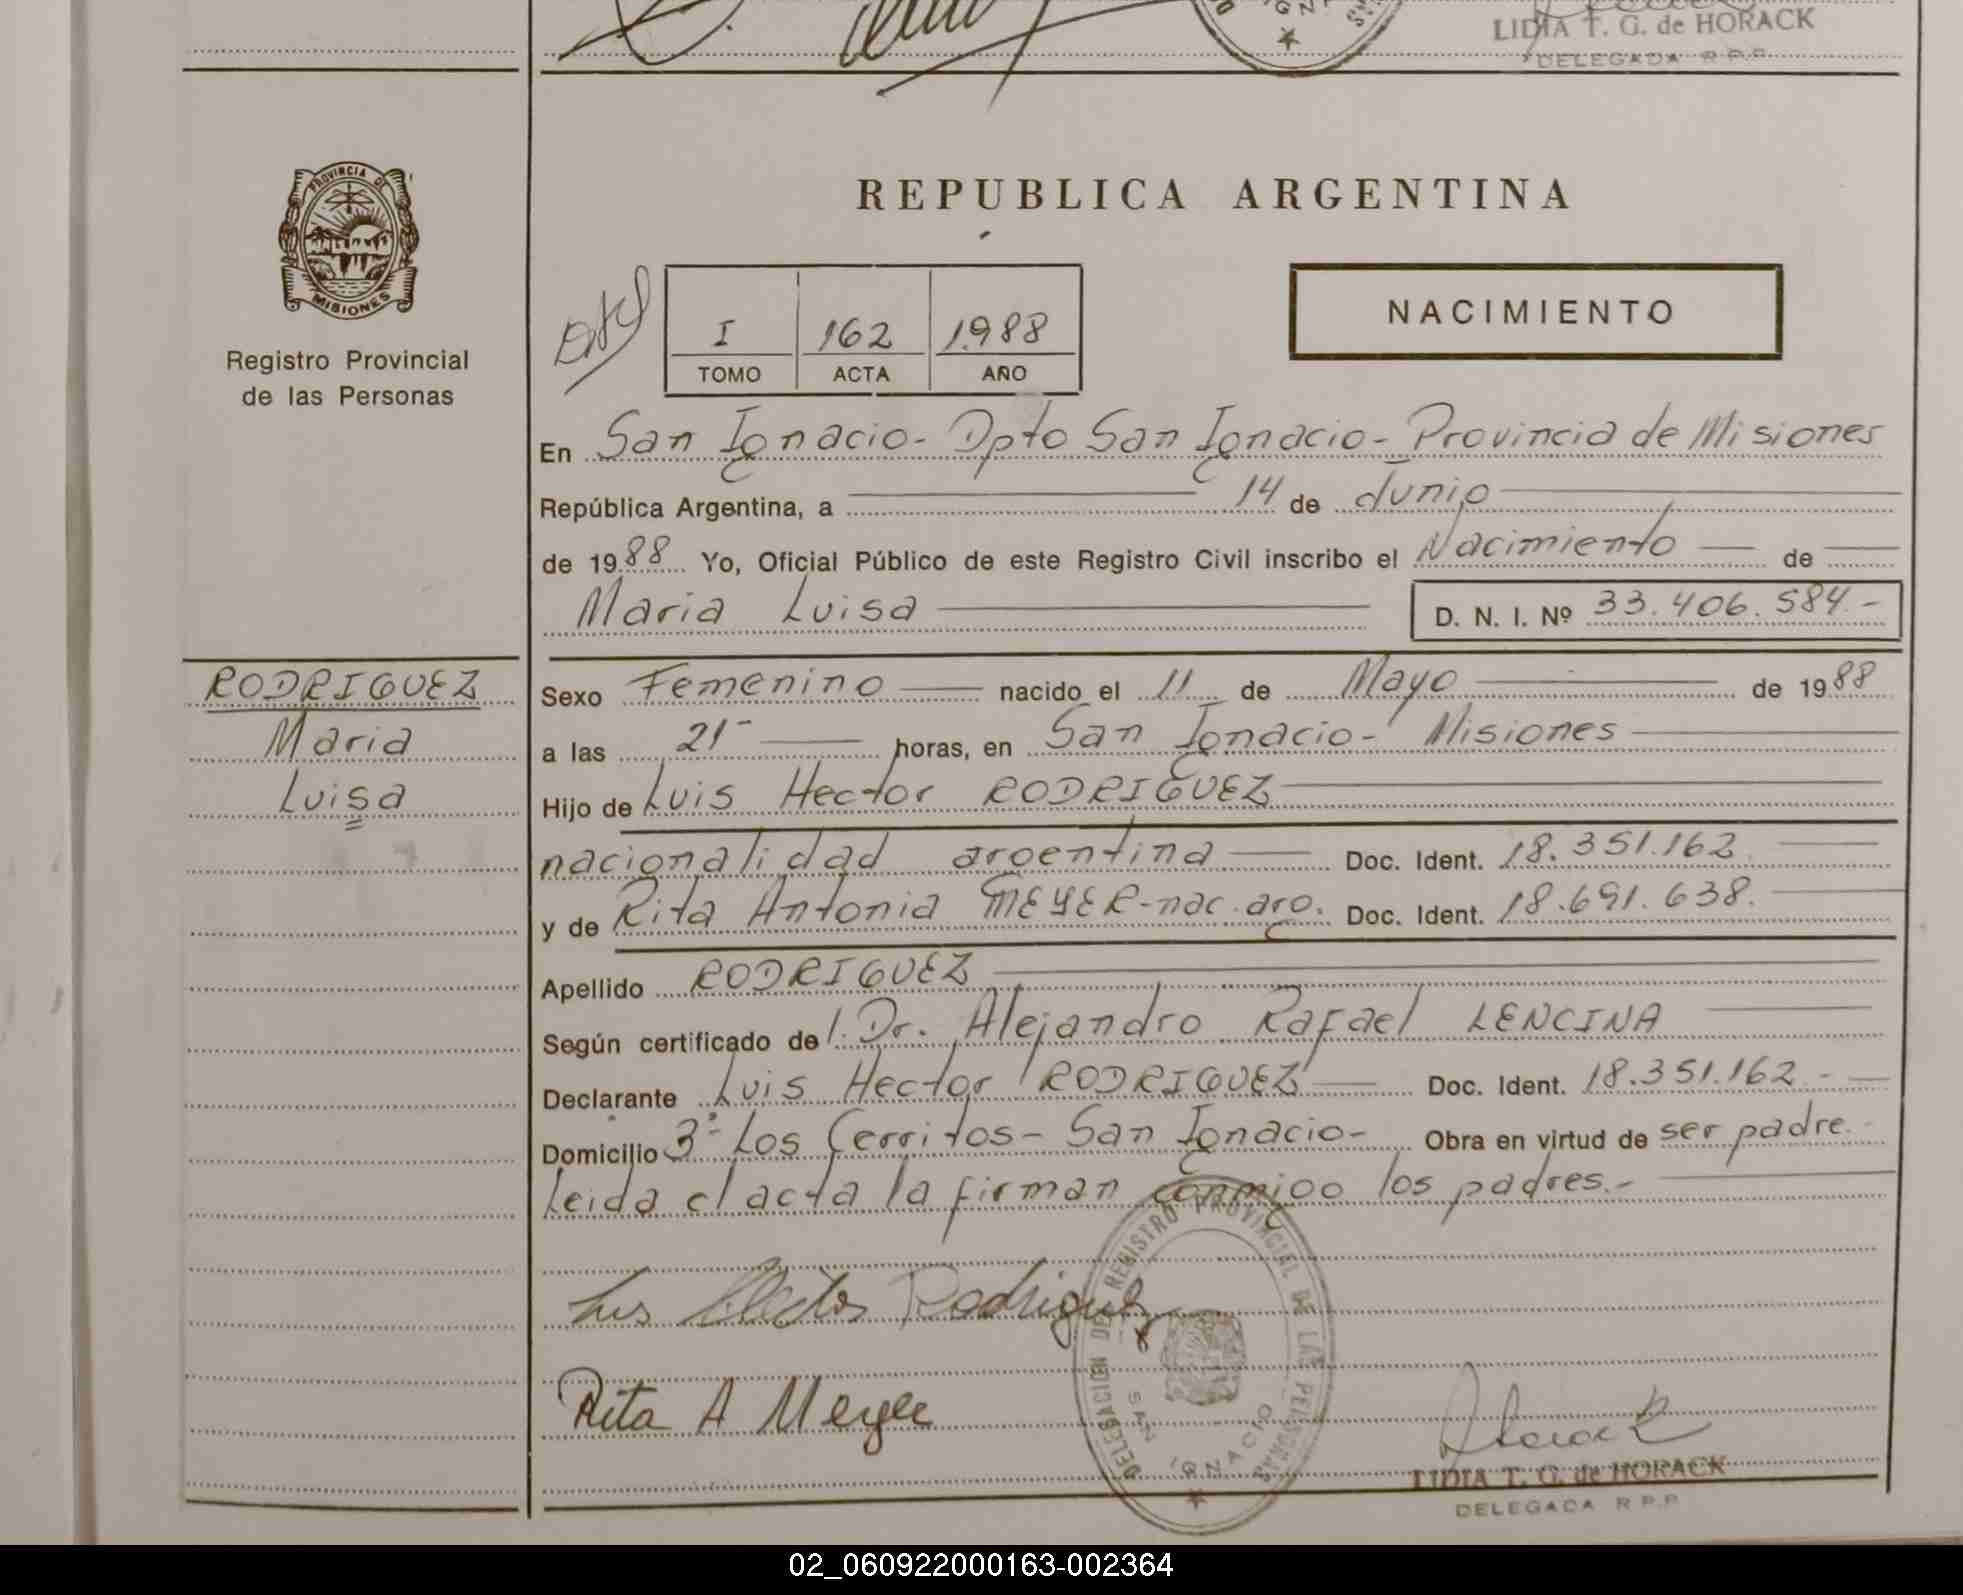 LIDIA T. G. de HORACK
DELEGADA R.P.P.
PROVINCIA DE
MISIONES
Registro Provincial
de las Personas
REPUBLICA ARGENTINA
I 162 1.988
TOMO ACTA AÑO
NACIMIENTO
En San Ignacio - Dpto San Ignacio - Provincia de Misiones
República Argentina, a 14 de Junio
de 1988 Yo, Oficial Público de este Registro Civil inscribo el Nacimiento de
Maria Luisa D. N. I. Nº 33.406.584.-
RODRIGUEZ
Maria
Luisa
Sexo Femenino nacido el 11 de Mayo de 1988
a las 21- horas, en San Ignacio - Misiones
Hijo de Luis Hector RODRIGUEZ
nacionalidad argentina Doc. Ident. 18.351.162
y de Rita Antonia MEYER - nac. arg. Doc. Ident. 18.691.638.
Apellido RODRIGUEZ
Según certificado del Dr. Alejandro Rafael LENCINA
Declarante Luis Hector RODRIGUEZ Doc. Ident. 18.351.162.-
Domicilio Bº Los Cerritos - San Ignacio - Obra en virtud de ser padre.-
Leida el acta la firman conmigo los padres.-
Luis Hector Rodriguez
Rita A Meyer
DELEGACION DEL REGISTRO PROVINCIAL DE LAS PERSONAS
SAN IGNACIO
Horack
LIDIA T. G. de HORACK
DELEGADA R.P.P.
02_060922000163-002364